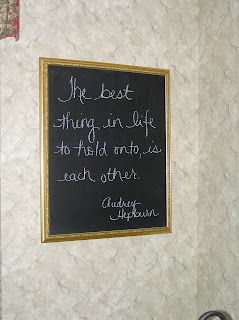 The best
thing in life
to hold onto, is
each other.
Audrey
Hepburn